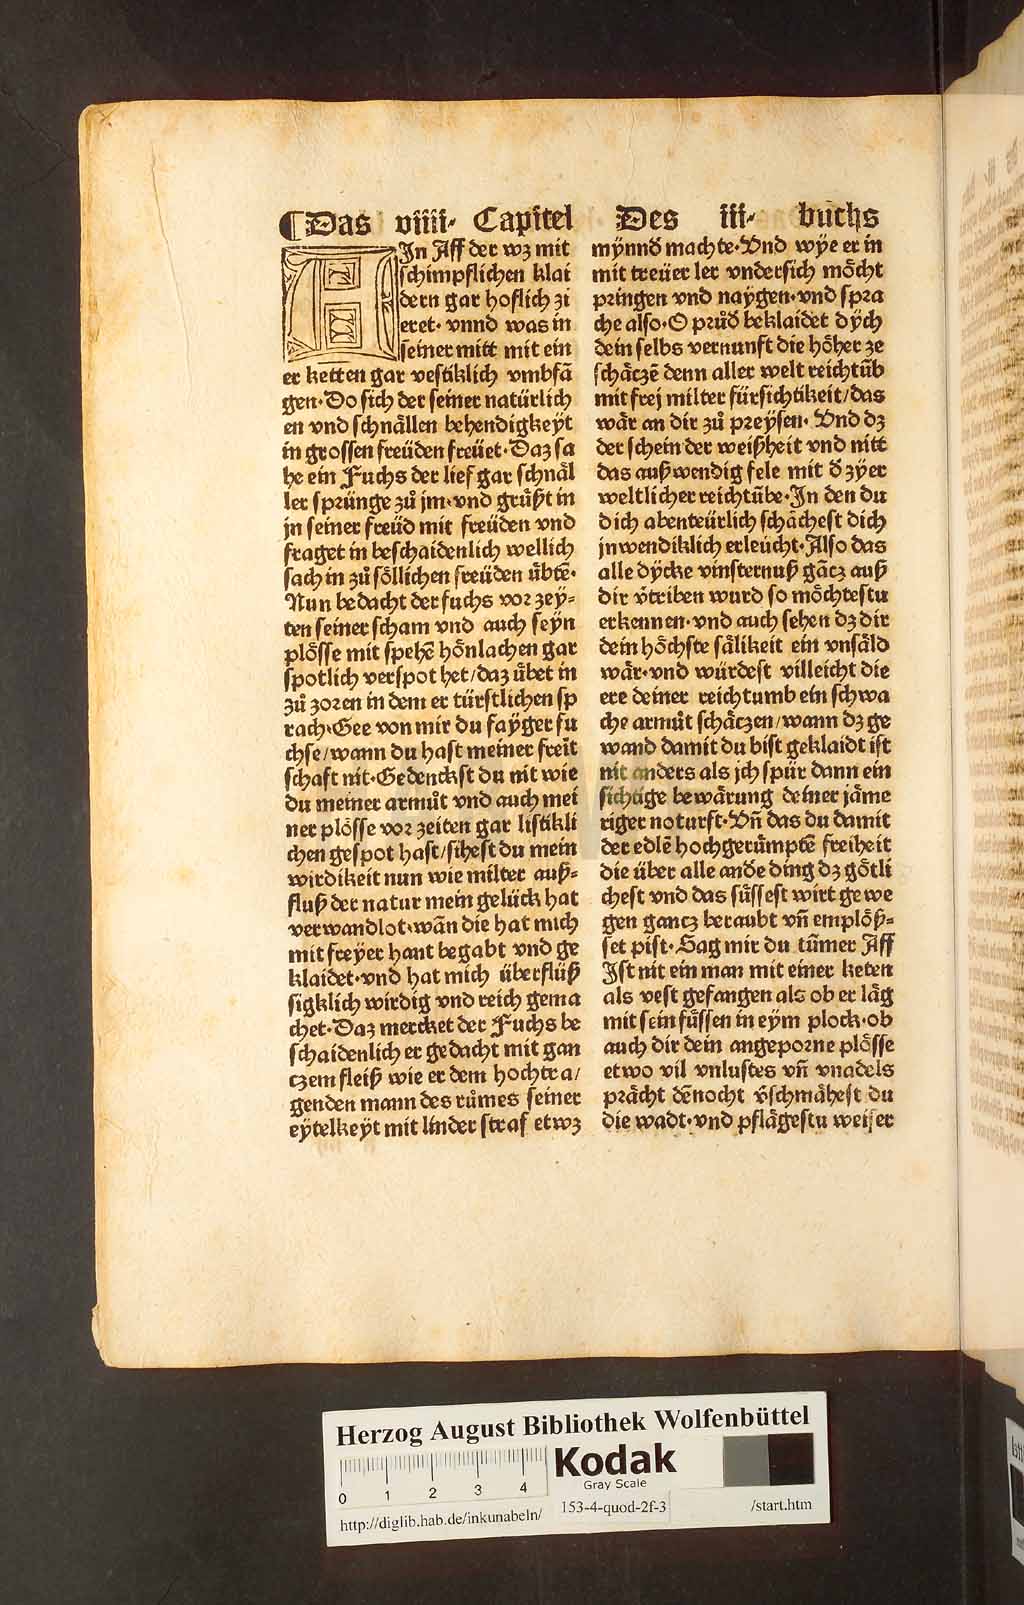 ¶Das viiii· Capitel Des iii· buchs
EIn Aff der wz mit
schimpflichen klai
dern gar hoflich zi
eret· vnnd was in
seiner mitt mit ein
er ketten gar vestiklich vmbfā
gen· Do sich der seiner natürlich
en vnd schnällen behendigkeyt
in grossen freüden freüet· Daz sa
he ein Fuchs der lief gar schnäl
ler sprünge zů jm· vnd grüßt in
jn seiner freüd mit freüden vnd
fraget in beschaidenlich wellich
sach in zů söllichen freüden übtē·
Nun bedacht der fuchs vor zeÿ⸗
ten seiner scham vnd auch seÿn
plösse mit spehē hönlachen gar
spotlich verspot het/daz übet in
zů zoren in dem er türstlichen sp
rach· Gee von mir du faÿger fu
chse/wann du hast meiner freüt
schaft nit· Gedenckst du nit wie
du meiner armůt vnd auch mei
ner plösse vor zeiten gar listikli
chen gespot hast/sihest du mein
wirdikeit nun wie milter auß⸗
fluß der natur mein gelück hat
verwandlot· wān die hat mich
mit freÿer hant begabt vnd ge
klaidet· vnd hat mich überflüß
sigklich wirdig vnd reich gema
chet· Daz mercket der Fuchs be
schaidenlich er gedacht mit gan
czem fleiß wie er dem hochtra/
genden mann des růmes seiner
eÿtelkeÿt mit linder straf etwz
mÿnnd̄ machte· Vnd wÿe er in
mit treüer ler vndersich möcht
pringen vnd naÿgen· vnd spra
che also· O průd̄ beklaidet dÿch
dein selbs vernunft die höher ze
schäczē denn aller welt reichtūb
mit frej milter fürsichtikeit/das
wär an dir zů preÿsen· Vnd dz
der schein der weißheit vnd nitt
das außwendig fele mit d̄ zÿer
weltlicher reichtūbe· In den du
dich abenteürlich schächest dich
jnwendiklich erleücht· Also das
alle dÿcke vinsternuß gācz auß
dir v̄triben wurd so möchtestu
erkennen· vnd auch sehen dz dir
dein höchste sälikeit ein vnsäld
wär· vnd würdest villeicht die
ere deiner reichtumb ein schwa
che armůt schäczen/wann dz ge
wand damit du bist geklaidt ist
nit anders als jch spür dann ein
sichtige bewärung deiner jäme
riger noturft· Vn̄ das du damit
der edlē hochgerümptē freiheit
die über alle and̄e ding dz götli
chest vnd das süssest wirt gewe
gen gancz beraubt vn̄ emplöß⸗
set pist· Sag mir du tūmer Aff
Ist nit ein man mit einer keten
als vest gefangen als ob er läg
mit sein füssen in eÿm plock· ob
auch dir dein angeporne plösse
etwo vil vnlustes vn̄ vnadels
prächt dēnocht v̄schmähest du
die wadt· vnd pflägestu weiser
Herzog August Bibliothek Wolfenbüttel
0 1 2 3 4
Kodak
Gray Scale
http://diglib.hab.de/inkunabeln/ 153-4-quod-2f-3 /start.htm